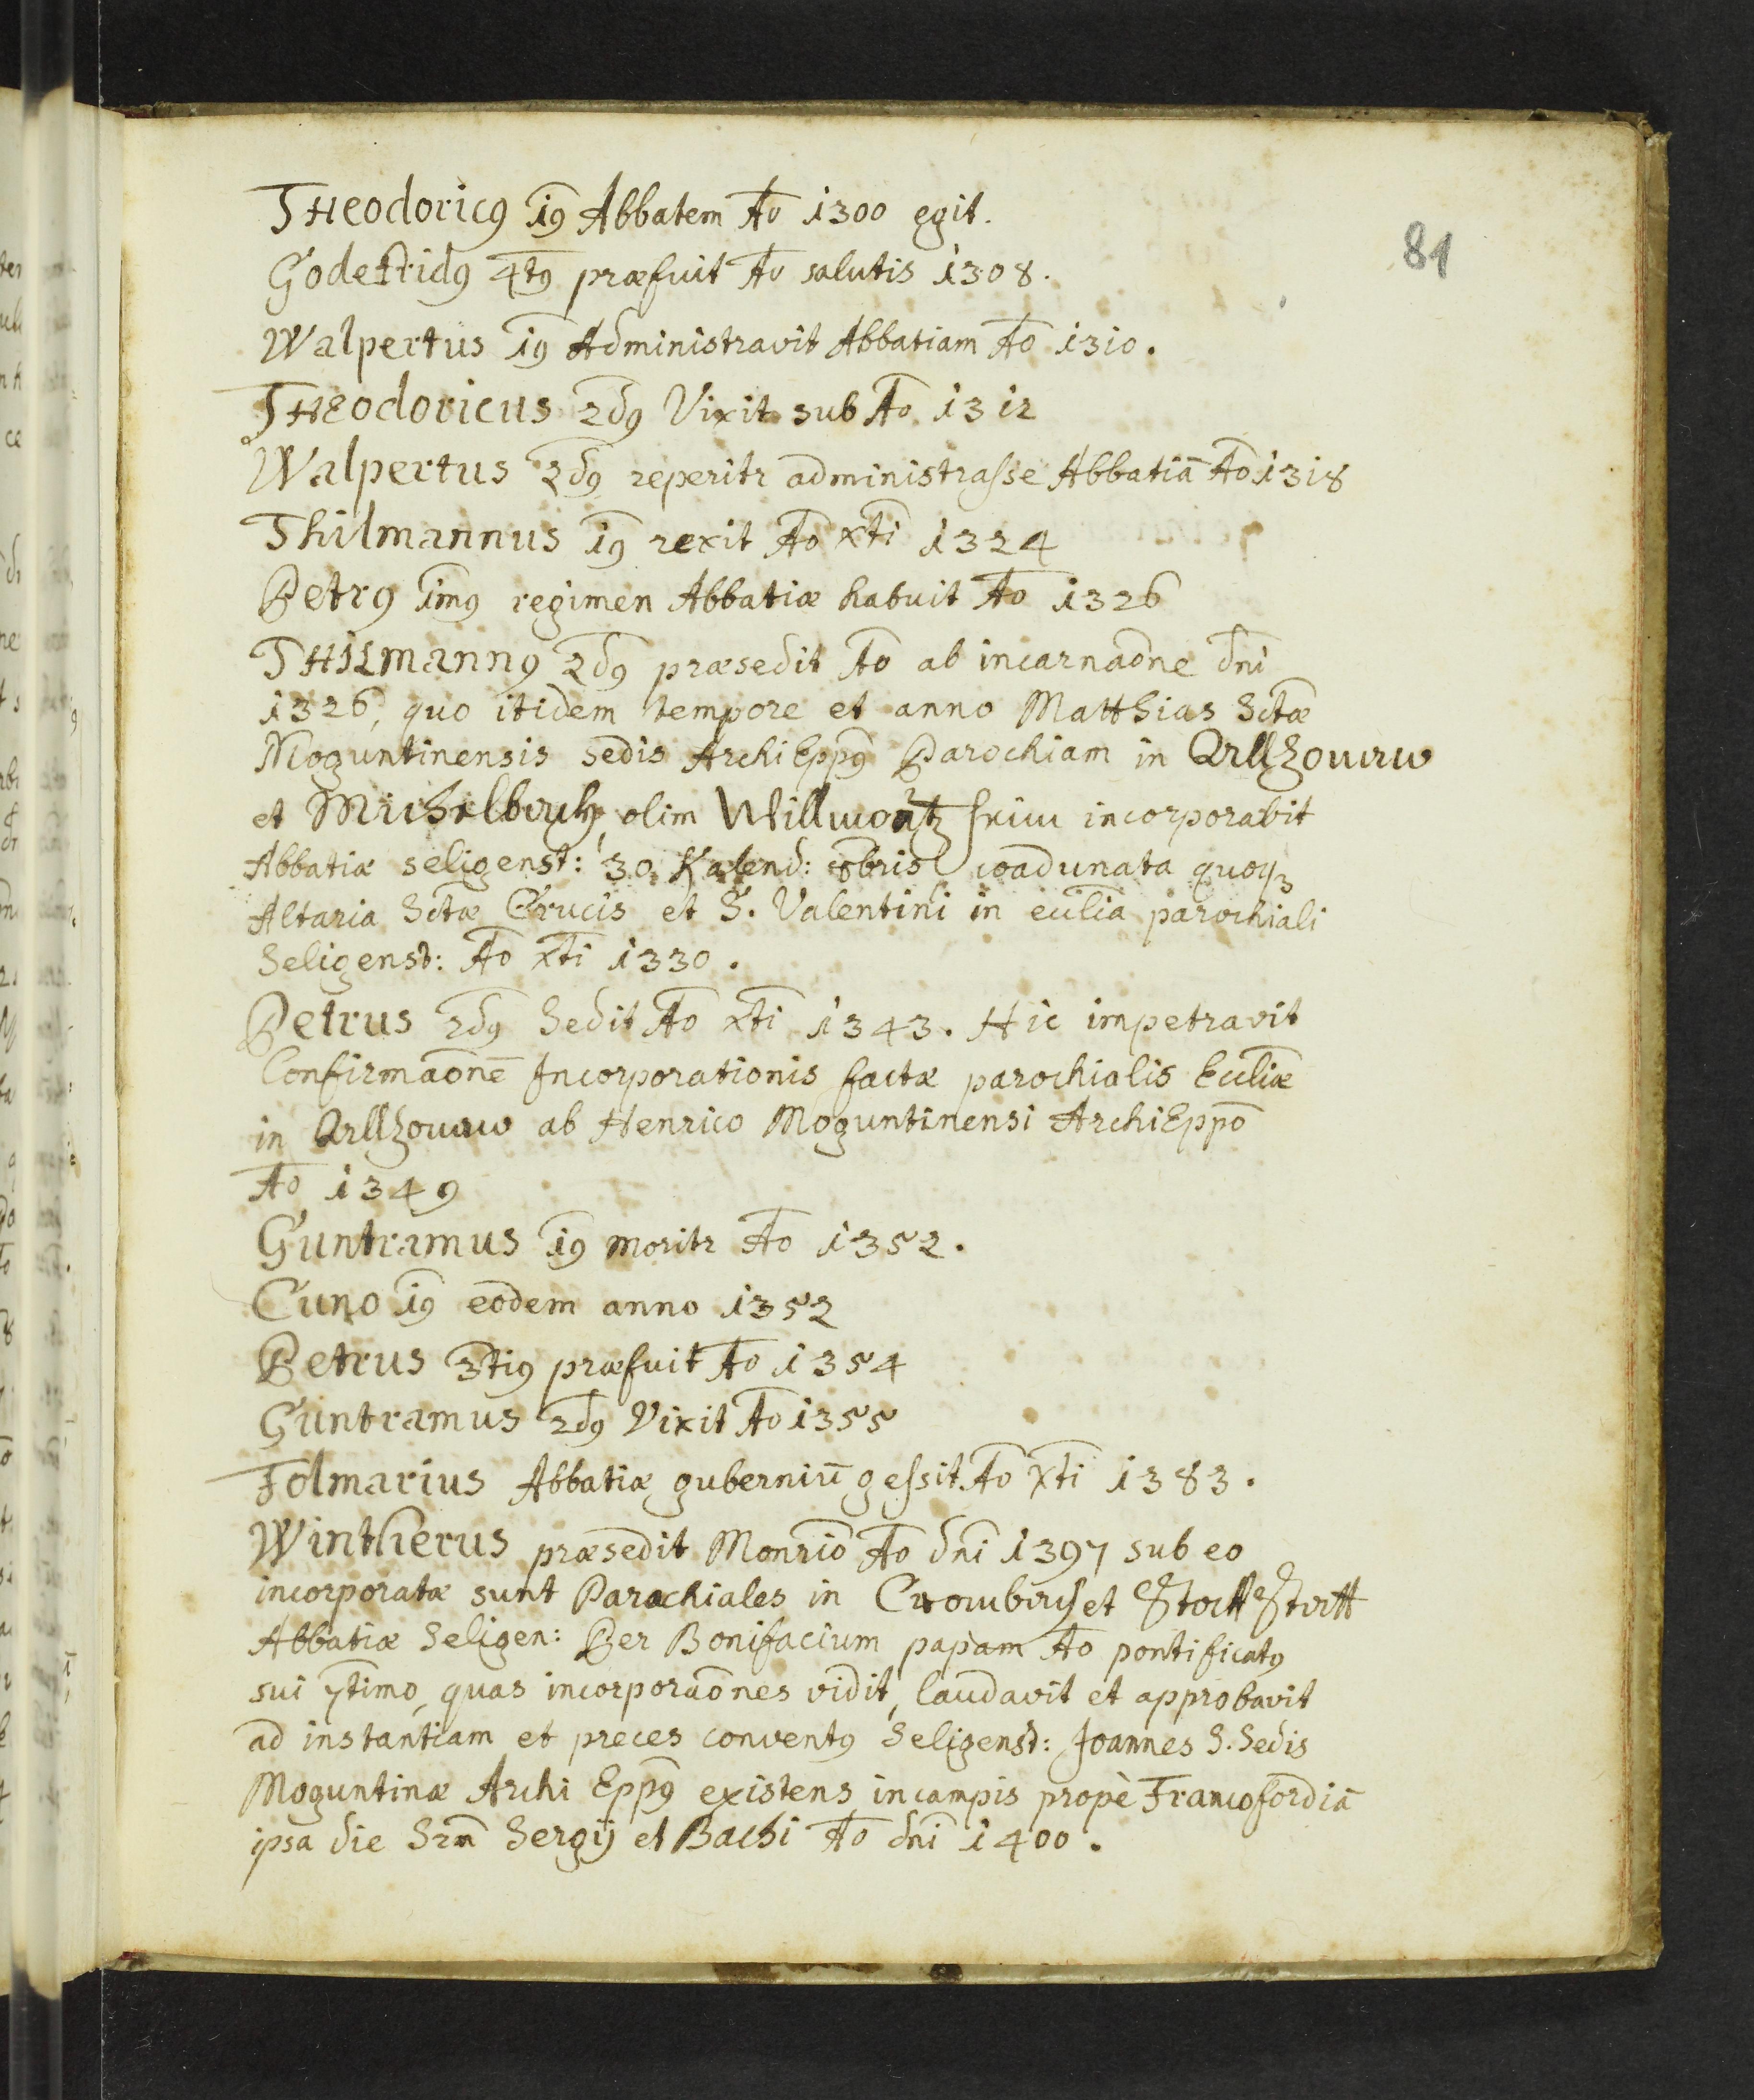 81
THeodoricꝰ 1ꝰ Abbatem Ao 1300 egit.
Godefridꝰ 4tꝰ præfuit Ao salutis 1308.
Walpertus 1ꝰ Administravit Abbatiam Ao 1310.
THeodoricus 2dꝰ Vixit sub Ao 1312
Walpertus 2dꝰ reperitr administraſse Abbatiā Ao 1318
Thilmannus 1ꝰ rexit Ao xti 1324
Petrꝰ 1mꝰ regimen Abbatiæ habuit Ao 1326
THILmannꝰ 2dꝰ præsedit Ao ab incarnaōne dni
1326, quo itidem tempore et anno Matthias Sctæ
Moguntinensis sedis ArchiEppꝰ Parochiam in
et Michelbach, olim incorporavit
Abbatiæ seligenst: 30. Kalend: 8bris coadunata quoqꝫ
Altaria Sctæ Crucis et S. Valentini in ecclia parochiali
Seligenst: Ao xti 1330.
Petrus 2dꝰ Sedit Ao xti 1343. Hic impetravit
Confirmaōnē Incorporationis factæ parochialis Eccliæ
in ab Henrico Moguntinensi ArchiEppo
Ao 1349
Guntramus 1ꝰ moritr Ao 1352.
Cuno 1ꝰ eodem anno 1352
Petrus 3tiꝰ præfuit Ao 1354
Guntramus 2dꝰ Vixit Ao 1355
Folmarius Abbatiæ guberniū geſsit Ao xti 1383.
Wintherus præsedit Monrio Ao dni 1397 sub eo
incorporatæ sunt Parochiales in Crombach et Stockstatt
Abbatiæ Seligen: Per Bonifacium papam Ao pontificatꝰ
sui 7timo, quas incorporaōnes vidit, laudavit et approbavit
ad instantiam et preces conventꝰ Seligenst: Joannes S. Sedis
Moguntinæ Archi Eppꝰ existens in campis propè Francofordiā
ipsa die Srm Sergij et Bachi Ao dni 1400.